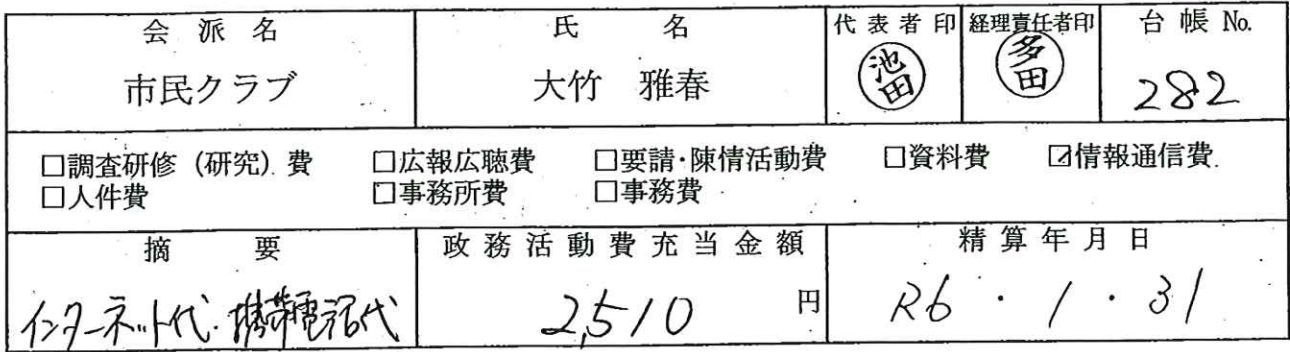 会派名 氏名 代表者印 経理責任者印 台帳No.
市民クラブ 大竹 雅春 池田 多田 282
□調査研修(研究)費 □広報広聴費 □要請・陳情活動費 □資料費 ☑情報通信費
□人件費 □事務所費 □事務費
摘要 政務活動費充当金額 精算年月日
インターネット代・携帯電話代 2,510 円 R6・1・31